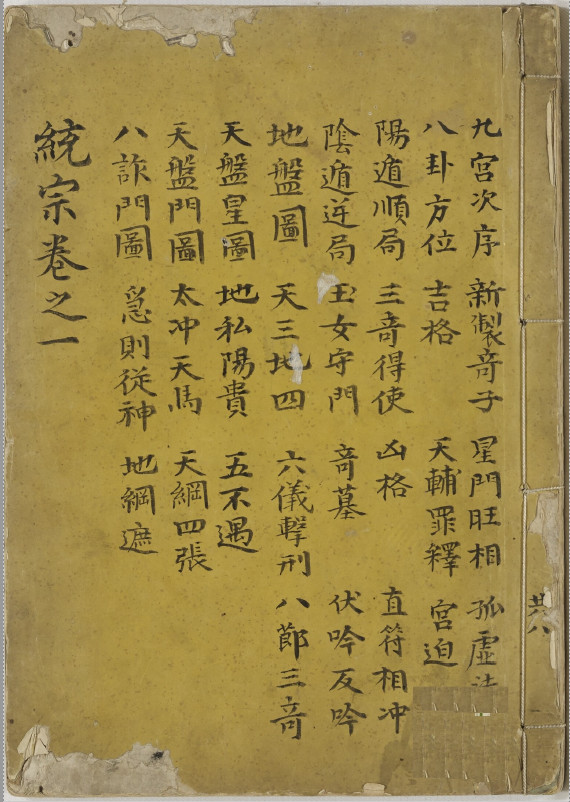 共八
九宮次序 新製竒子 星門旺相 孤虛法
八卦方位 吉格 天輔罪釋 宮迫
陽遁順局 三竒得使 凶格 直符相冲
陰遁逆局 玉女守門 竒墓 伏吟反吟
地盤圖 天三地四 六儀擊刑 八節三竒
天盤星圖 地私陽貴 五不遇
天盤門圖 太冲天馬 天綱四張
八詐門圖 急則従神 地綱遮
統宗卷之一